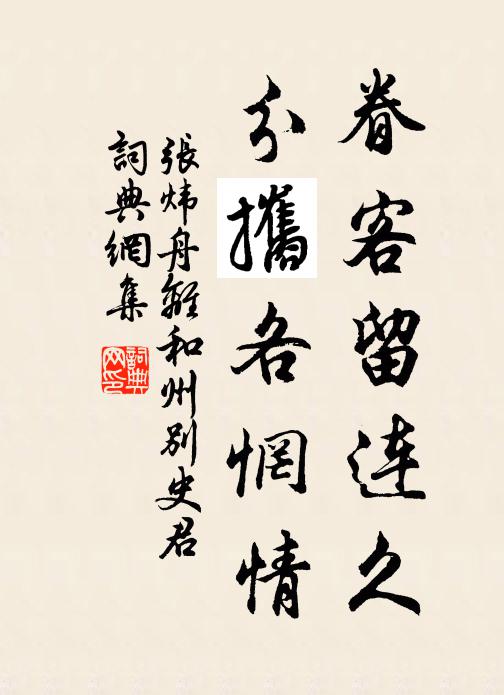 眷客留连久
分攜各惘情
張炜舟離和州别史君
詞典網集
詞典網印